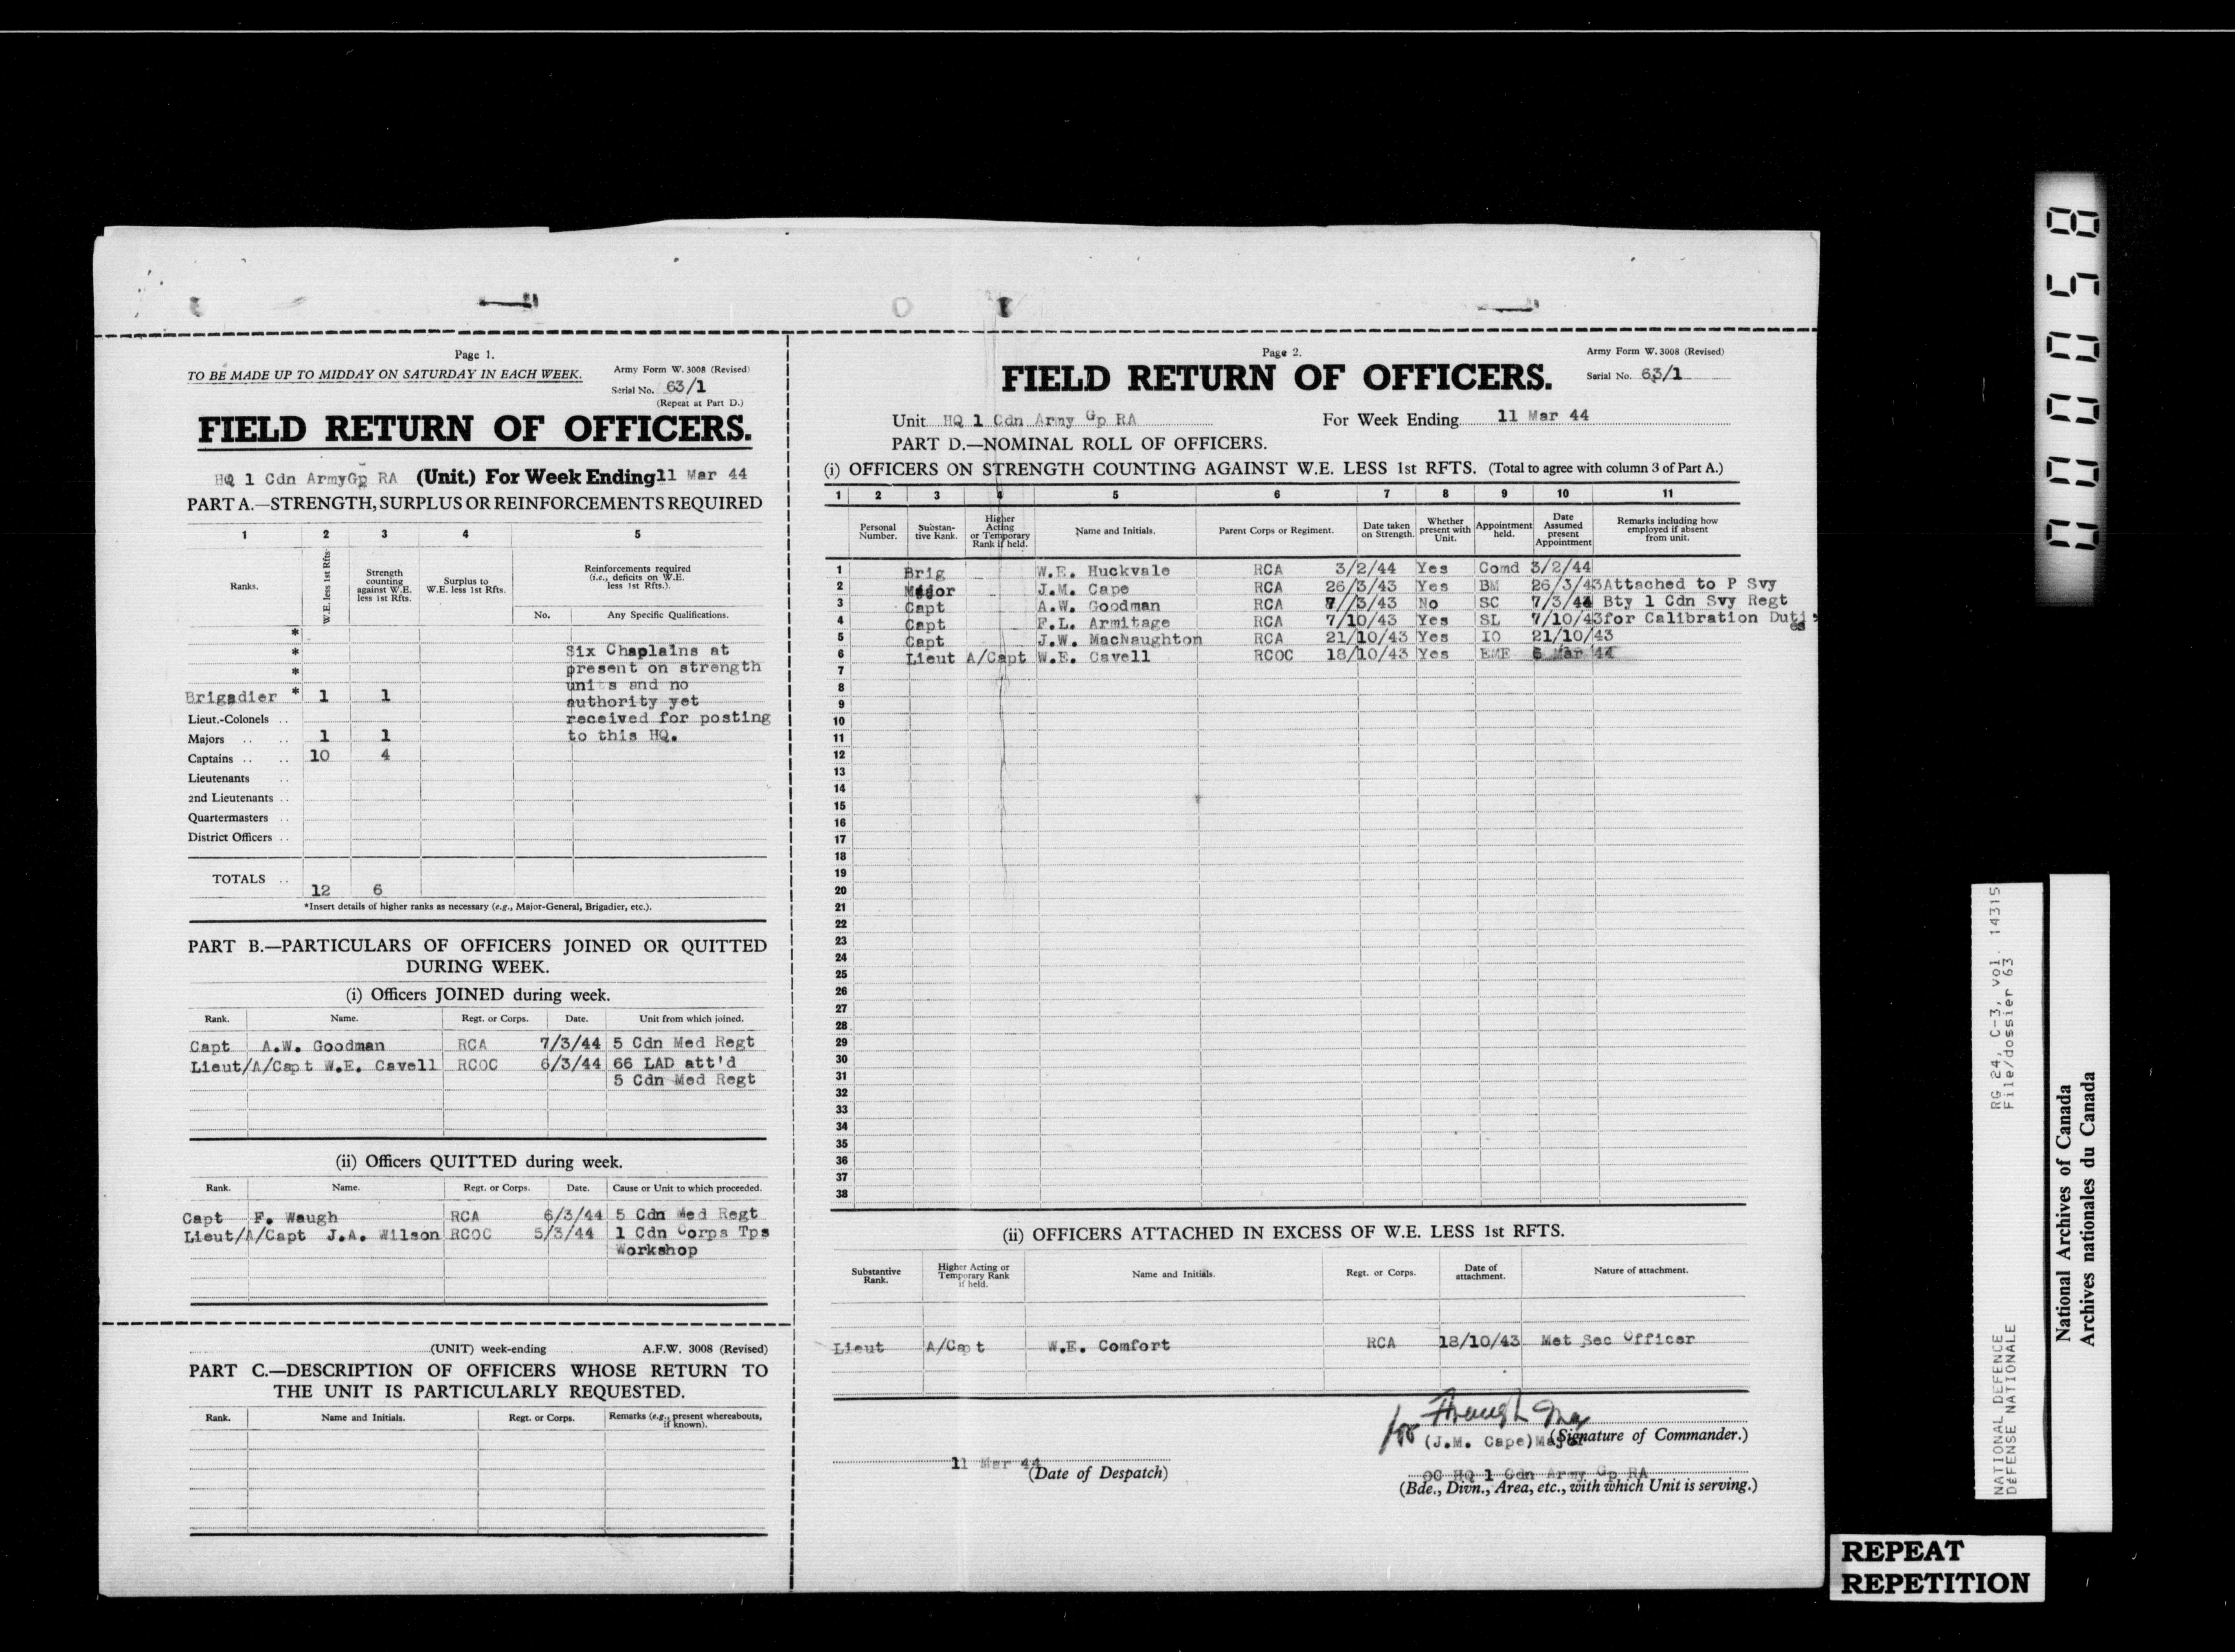 Page 1.
TO BE MADE UP TO MIDDAY ON SATURDAY IN EACH WEEK.
Army Form W. 3008 (Revised)
Serial No. 63/1
(Repeat at Part D.)
FIELD RETURN OF OFFICERS.
HQ 1 Cdn ArmyGp RA (Unit.) For Week Ending 11 Mar 44
PART A.—STRENGTH, SURPLUS OR REINFORCEMENTS REQUIRED
1 2 3 4 5
Ranks.
W.E. less 1st Rfts.
Strength counting against W.E. less 1st Rfts.
Surplus to W.E. less 1st Rfts.
Reinforcements required (i.e., deficits on W.E. less 1st Rfts.).
No. Any Specific Qualifications.
*
* Six Chaplains at
* present on strength
units and no
Brigadier * 1 1 authority yet
Lieut.-Colonels .. received for posting
Majors .. .. 1 1 to this HQ.
Captains .. .. 10 4
Lieutenants ..
2nd Lieutenants ..
Quartermasters ..
District Officers ..
TOTALS .. 12 6
*Insert details of higher ranks as necessary (e.g., Major-General, Brigadier, etc.).
PART B.—PARTICULARS OF OFFICERS JOINED OR QUITTED
DURING WEEK.
(i) Officers JOINED during week.
Rank. Name. Regt. or Corps. Date. Unit from which joined.
Capt A.W. Goodman RCA 7/3/44 5 Cdn Med Regt
Lieut/A/Capt W.E. Cavell RCOC 6/3/44 66 LAD att'd
5 Cdn Med Regt
(ii) Officers QUITTED during week.
Rank. Name. Regt. or Corps. Date. Cause or Unit to which proceeded.
Capt F. Waugh RCA 6/3/44 5 Cdn Med Regt
Lieut/A/Capt J.A. Wilson RCOC 5/3/44 1 Cdn Corps Tps
Workshop
(UNIT) week-ending A.F.W. 3008 (Revised)
PART C.—DESCRIPTION OF OFFICERS WHOSE RETURN TO
THE UNIT IS PARTICULARLY REQUESTED.
Rank. Name and Initials. Regt. or Corps. Remarks (e.g., present whereabouts, if known).
Page 2.
Army Form W. 3008 (Revised)
FIELD RETURN OF OFFICERS.
Serial No. 63/1
Unit HQ 1 Cdn Army Gp RA For Week Ending 11 Mar 44
PART D.—NOMINAL ROLL OF OFFICERS.
(i) OFFICERS ON STRENGTH COUNTING AGAINST W.E. LESS 1st RFTS. (Total to agree with column 3 of Part A.)
1 2 3 4 5 6 7 8 9 10 11
Personal Number.
Substantive Rank.
Higher Acting or Temporary Rank if held.
Name and Initials.
Parent Corps or Regiment.
Date taken on Strength.
Whether present with Unit.
Appointment held.
Date Assumed present Appointment
Remarks including how employed if absent from unit.
1 Brig W.E. Huckvale RCA 3/2/44 Yes Comd 3/2/44
2 Major J.M. Cape RCA 26/3/43 Yes BM 26/3/43 Attached to P Svy
3 Capt A.W. Goodman RCA 7/3/43 No SC 7/3/44 Bty 1 Cdn Svy Regt
4 Capt F.L. Armitage RCA 7/10/43 Yes SL 7/10/43 for Calibration Duties
5 Capt J.W. MacNaughton RCA 21/10/43 Yes IO 21/10/43
6 Lieut A/Capt W.E. Cavell RCOC 18/10/43 Yes EME 6 Mar 44
7
8
9
10
11
12
13
14
15
16
17
18
19
20
21
22
23
24
25
26
27
28
29
30
31
32
33
34
35
36
37
38
(ii) OFFICERS ATTACHED IN EXCESS OF W.E. LESS 1st RFTS.
Substantive Rank.
Higher Acting or Temporary Rank if held.
Name and Initials.
Regt. or Corps.
Date of attachment.
Nature of attachment.
Lieut A/Capt W.E. Comfort RCA 18/10/43 Met Sec Officer
for
(J.M. Cape) Major (Signature of Commander.)
11 Mar 44 (Date of Despatch)
OC HQ 1 Cdn Army Gp RA
(Bde., Divn., Area, etc., with which Unit is serving.)
000058
RG 24, C-3, vol. 14315
File/dossier 63
NATIONAL DEFENCE
DÉFENSE NATIONALE
National Archives of Canada
Archives nationales du Canada
REPEAT
REPETITION